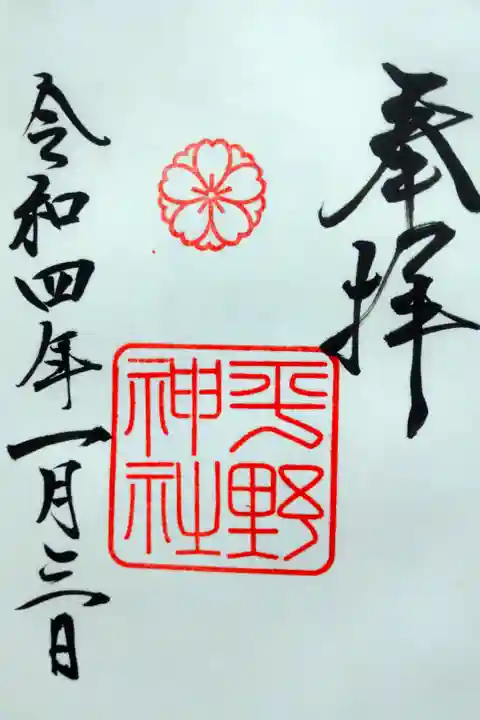 奉拝
平野
神社
令和四年一月三日